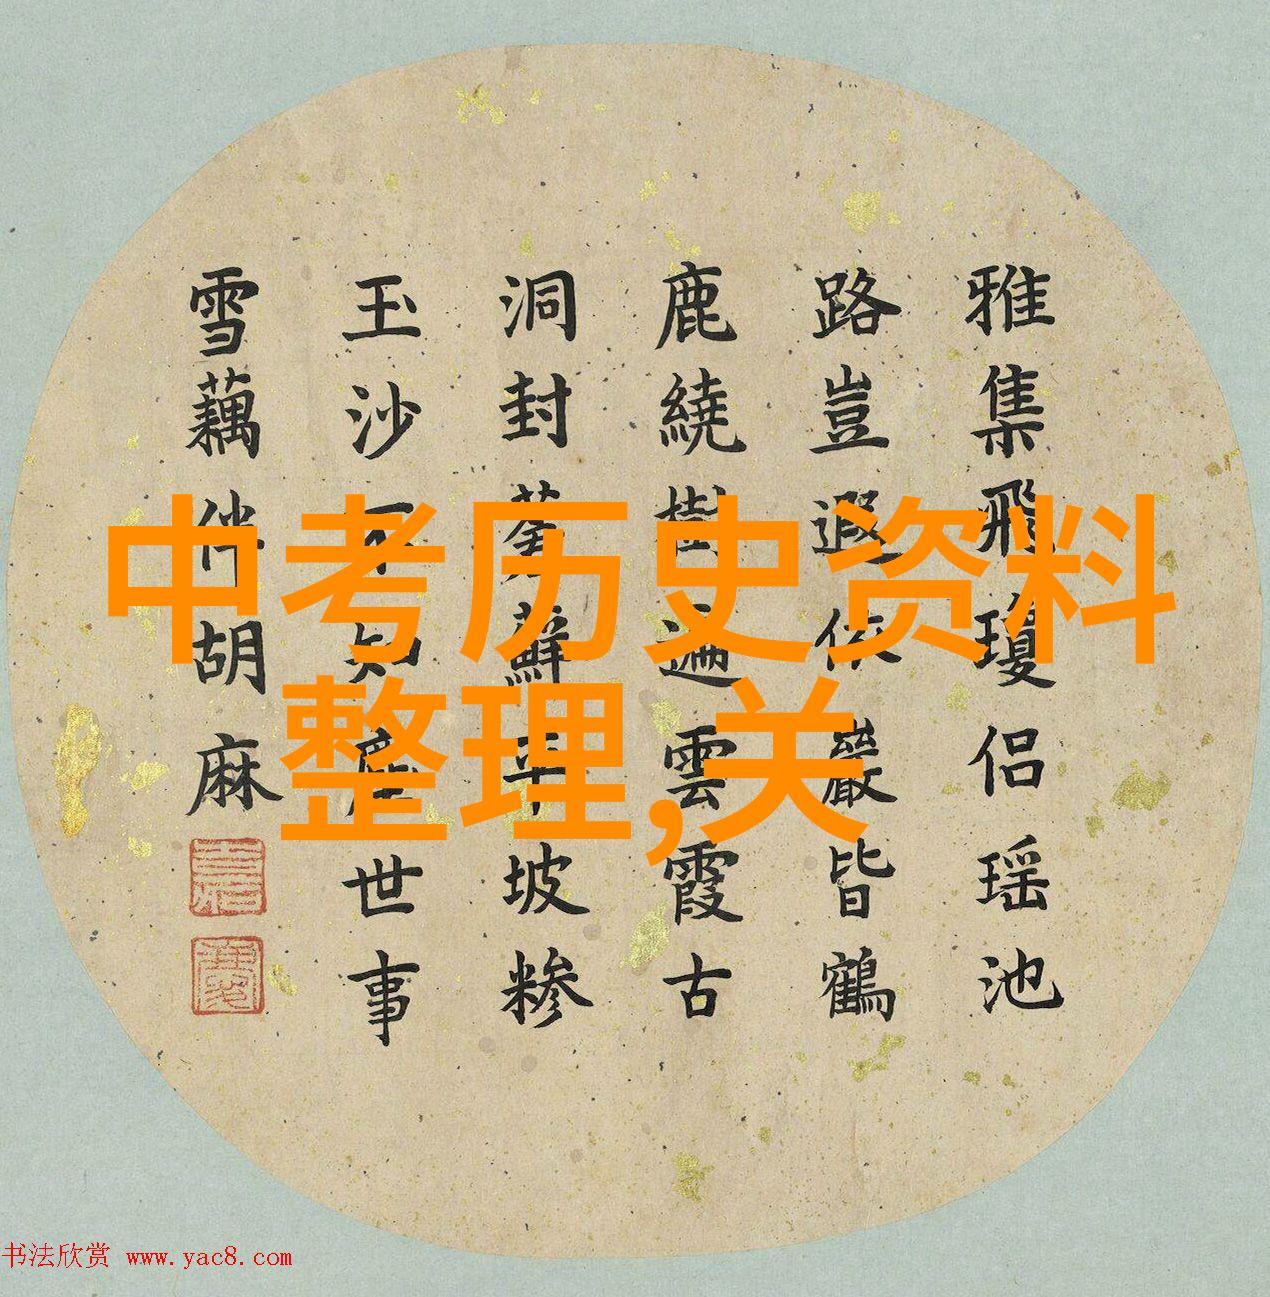 中考历史资料
整理,关
雅集飛瓊侶瑶池
路豈遐依巖皆鶴
鹿繞樹遍雲霞古
洞封蘚平坡糝
玉沙不知塵世事
雪藕伴胡麻
书法欣赏 www.yac8.com